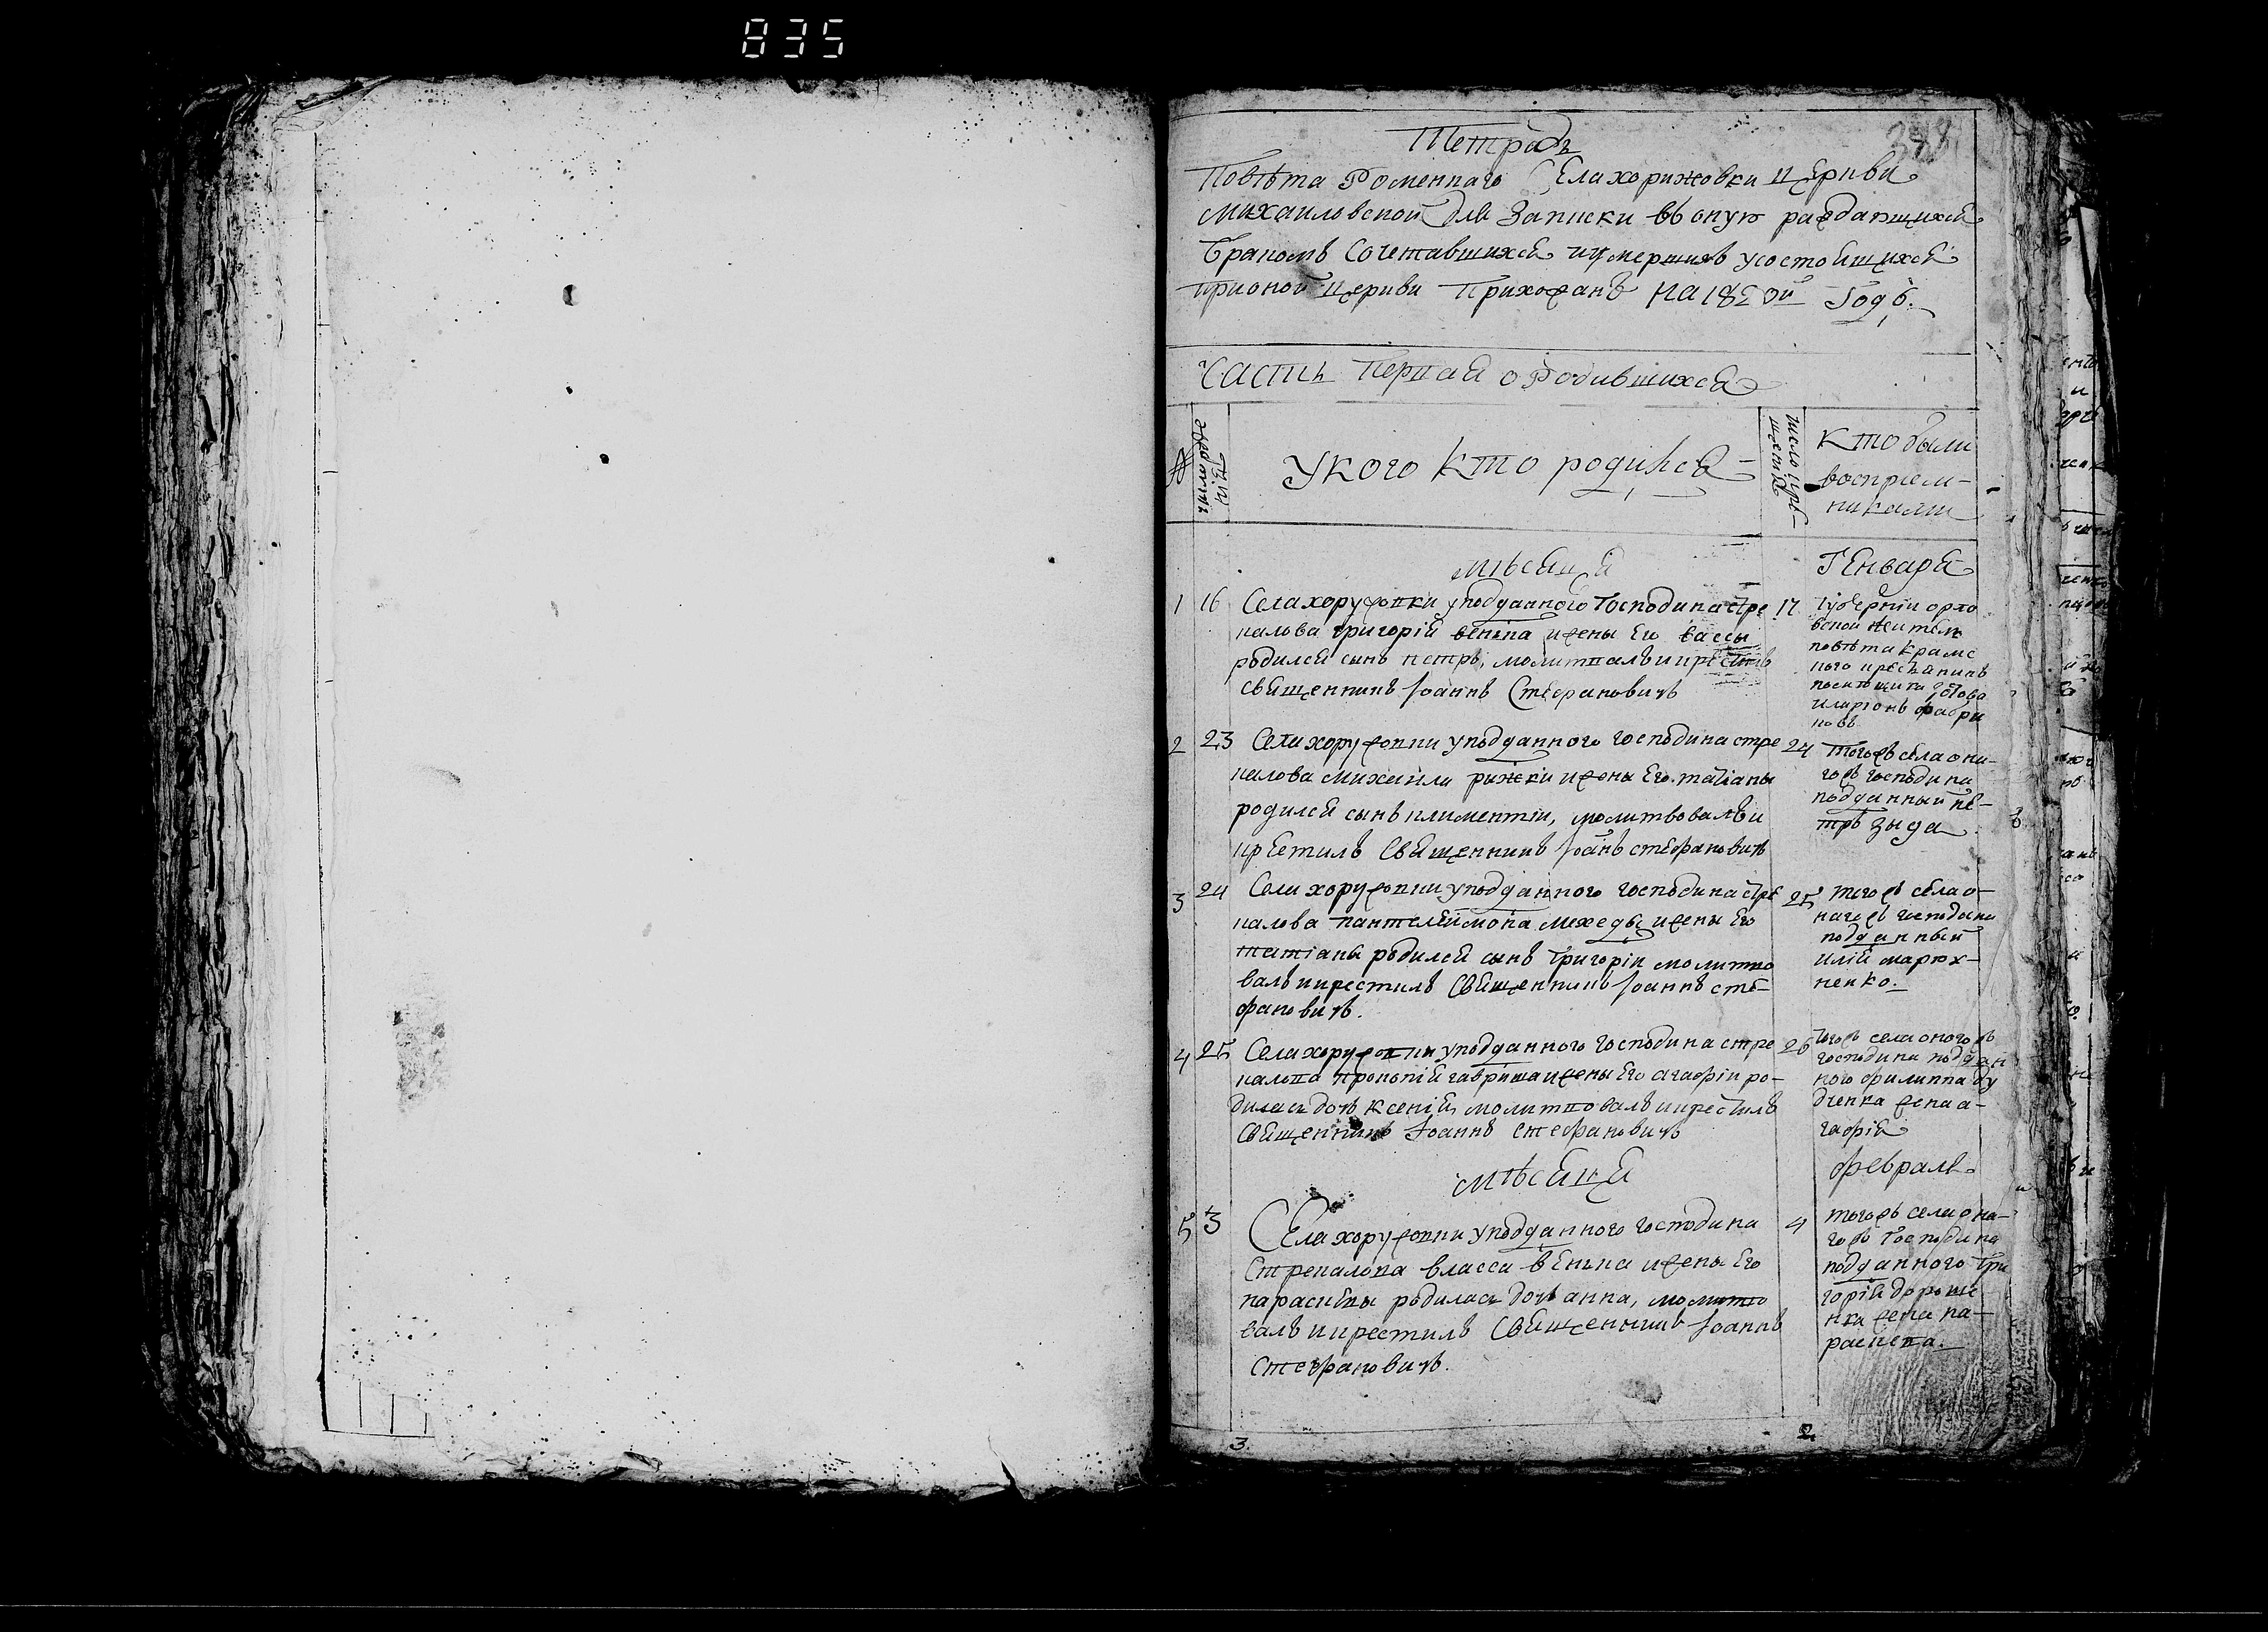 835
348
Тетрадь
Повѣта Роменнаго Села хорижовки церкви
михаиловской для Записки въ оную раждающихся
бракомъ Сочетавшихся и умершихъ
при оной церкви Прихожанъ на 1820й Годъ.
Часть Первая о Родившихся
№
У кого кто родился
кто были
восприем-
никами
мѣсяца Генваря
1 16 Села хоружовки у подданного Господина стре 17
калова григорія венька и жены Его вассы
родился сынъ петръ, молитвалъ и крестилъ
священникъ Іоаннъ Стефановичъ
Губерніи орло
вской
повѣта краме
ного
иларіонъ
новъ
2 23 Села хоружовки у подданного господина стре 24
калова михаила рижки и жены Его татіаны
родился сынъ климентіи, молитвовалъ и
крестилъ Священникъ Іоанъ стефановичъ
тогожъ села она-
гожъ господина
подданный пе-
тръ зыда
3 24 Села хоружовки у подданного господина стре 25
калова пантелеймона мехеды и жены Его
татіаны родился сынъ григоріи молитво
валъ и крестилъ Священникъ Іоаннъ сте-
фановичъ.
тогожъ села о-
нагожъ господина
подданный
илія марюх-
ненко.
4 25 Села хоружовки у подданного господина стре 26
калова прокопія гавриша и жены Его агафіи ро-
дилась дочь ксенія, молитвовалъ и крестилъ
Священникъ Іоаннъ стефановичъ
тогожъ села оногожъ
господина поддан
ного филиппа ду
дченка жена а-
гафія
мѣсяца февраля
5 3 Села хоружовки у подданного господина 4
Стрекалова власса венька и жены Его
параскевы родилась дочь анна, молитво
валъ и крестилъ Священникъ Іоаннъ
Стефановичъ.
тогожъ села она-
гожъ Господина
подданного гри
горія дороше
нка жена па-
раскева.
3. 2